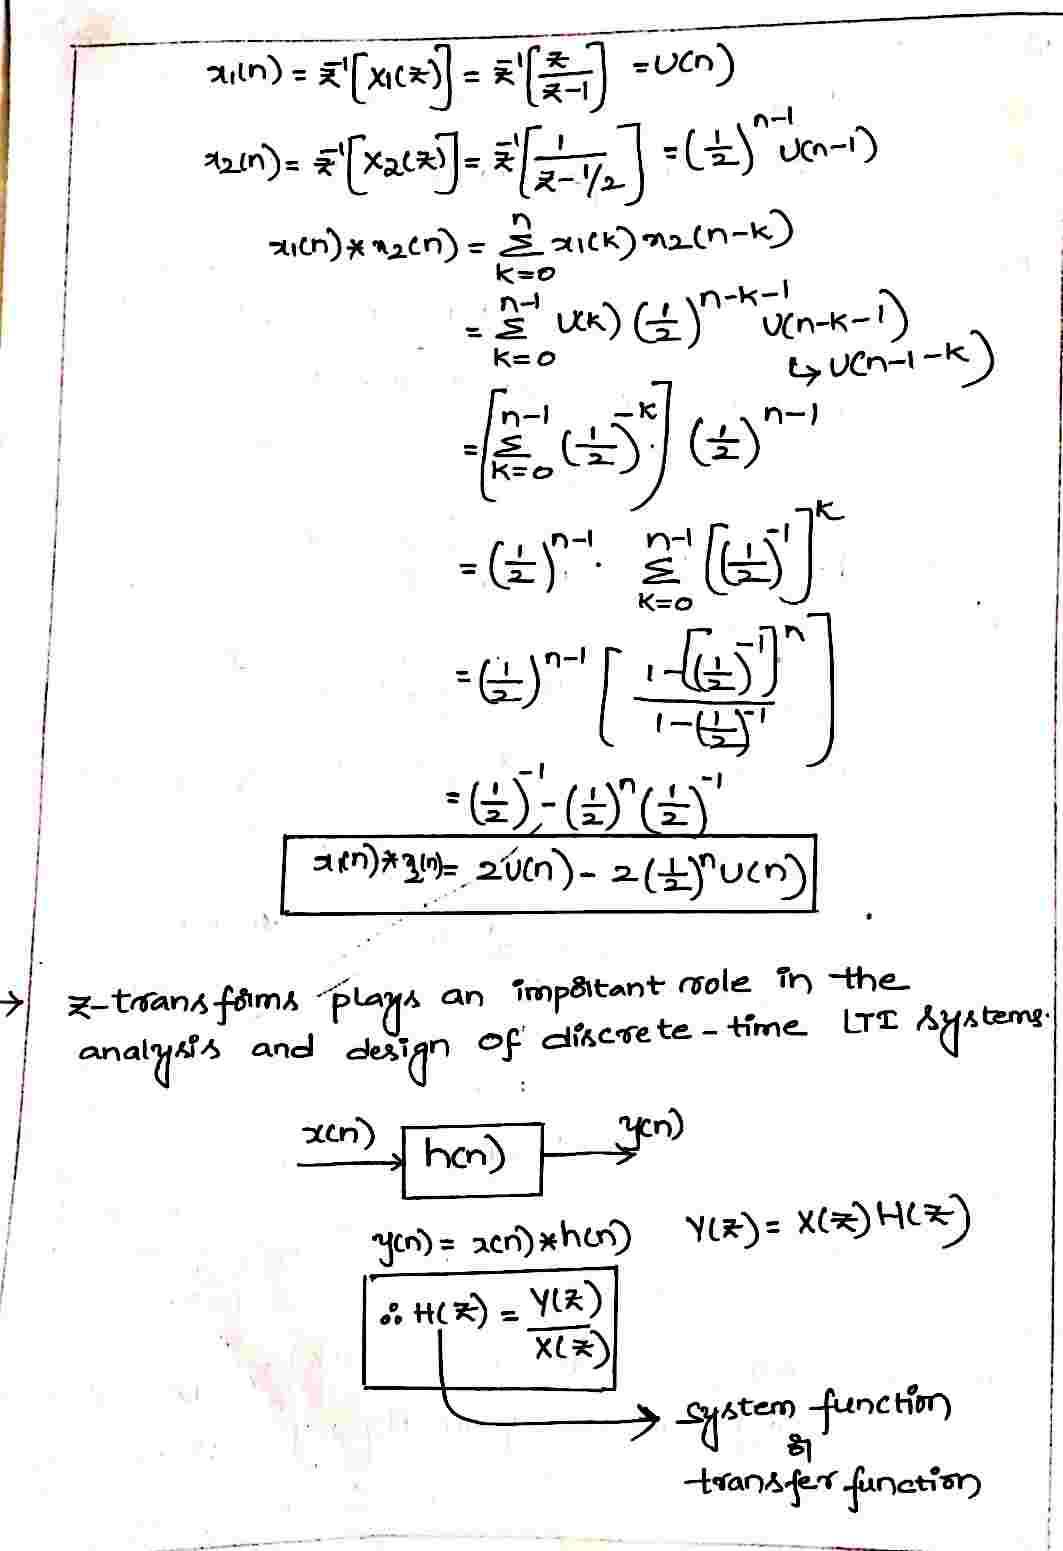 x₁(n) = z⁻¹[X₁(z)] = z⁻¹[z/(z-1)] = U(n)
x₂(n) = z⁻¹[X₂(z)] = z⁻¹[1/(z-1/2)] = (1/2)ⁿ⁻¹ U(n-1)
x₁(n) * x₂(n) = Σ_{k=0}^{n} x₁(k) x₂(n-k)
= Σ_{k=0}^{n-1} U(k) (1/2)^{n-k-1} U(n-k-1)
↳ U(n-1-k)
= [Σ_{k=0}^{n-1} (1/2)^{-k}] (1/2)^{n-1}
= (1/2)^{n-1} · Σ_{k=0}^{n-1} [(1/2)^{-1}]^k
= (1/2)^{n-1} [(1-[(1/2)^{-1}]^n)/(1-(1/2)^{-1})]
= (1/2)^{-1} - (1/2)^n (1/2)^{-1}
x₁(n) * x₂(n) = 2U(n) - 2(1/2)^n U(n)
→ z-transforms plays an important role in the
analysis and design of discrete-time LTI systems.
x(n) h(n) y(n)
y(n) = x(n) * h(n) Y(z) = X(z) H(z)
∴ H(z) = Y(z)/X(z)
system function
or
transfer function